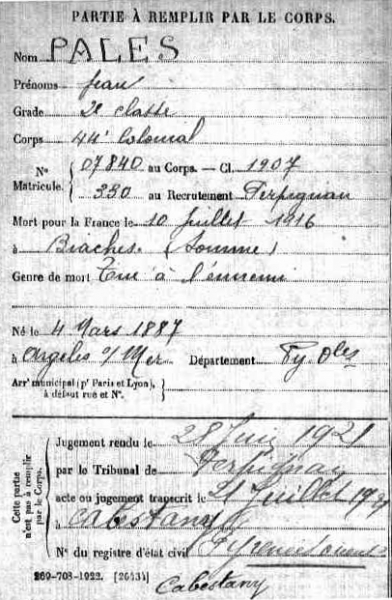 PARTIE À REMPLIR PAR LE CORPS.
Nom PALES
Prénoms Jean
Grade 2e classe
Corps 44e Colonial
No Matricule. 07840 au Corps. — Cl. 1907
330 au Recrutement Perpignan
Mort pour la France le 10 Juillet 1916
à Biaches (Somme)
Genre de mort Tué à l'ennemi
Né le 4 Mars 1887
à Argelès s/ Mer Département Py. Oles
Arrt municipal (pr Paris et Lyon), à défaut rue et No.
Cette partie n'est pas à remplir par le Corps.
Jugement rendu le 28 Juin 1921
par le Tribunal de Perpignan
acte ou jugement transcrit le 21 Juillet 1921
à Cabestany
No du registre d'état civil
269-708-1922. [26434] Cabestany